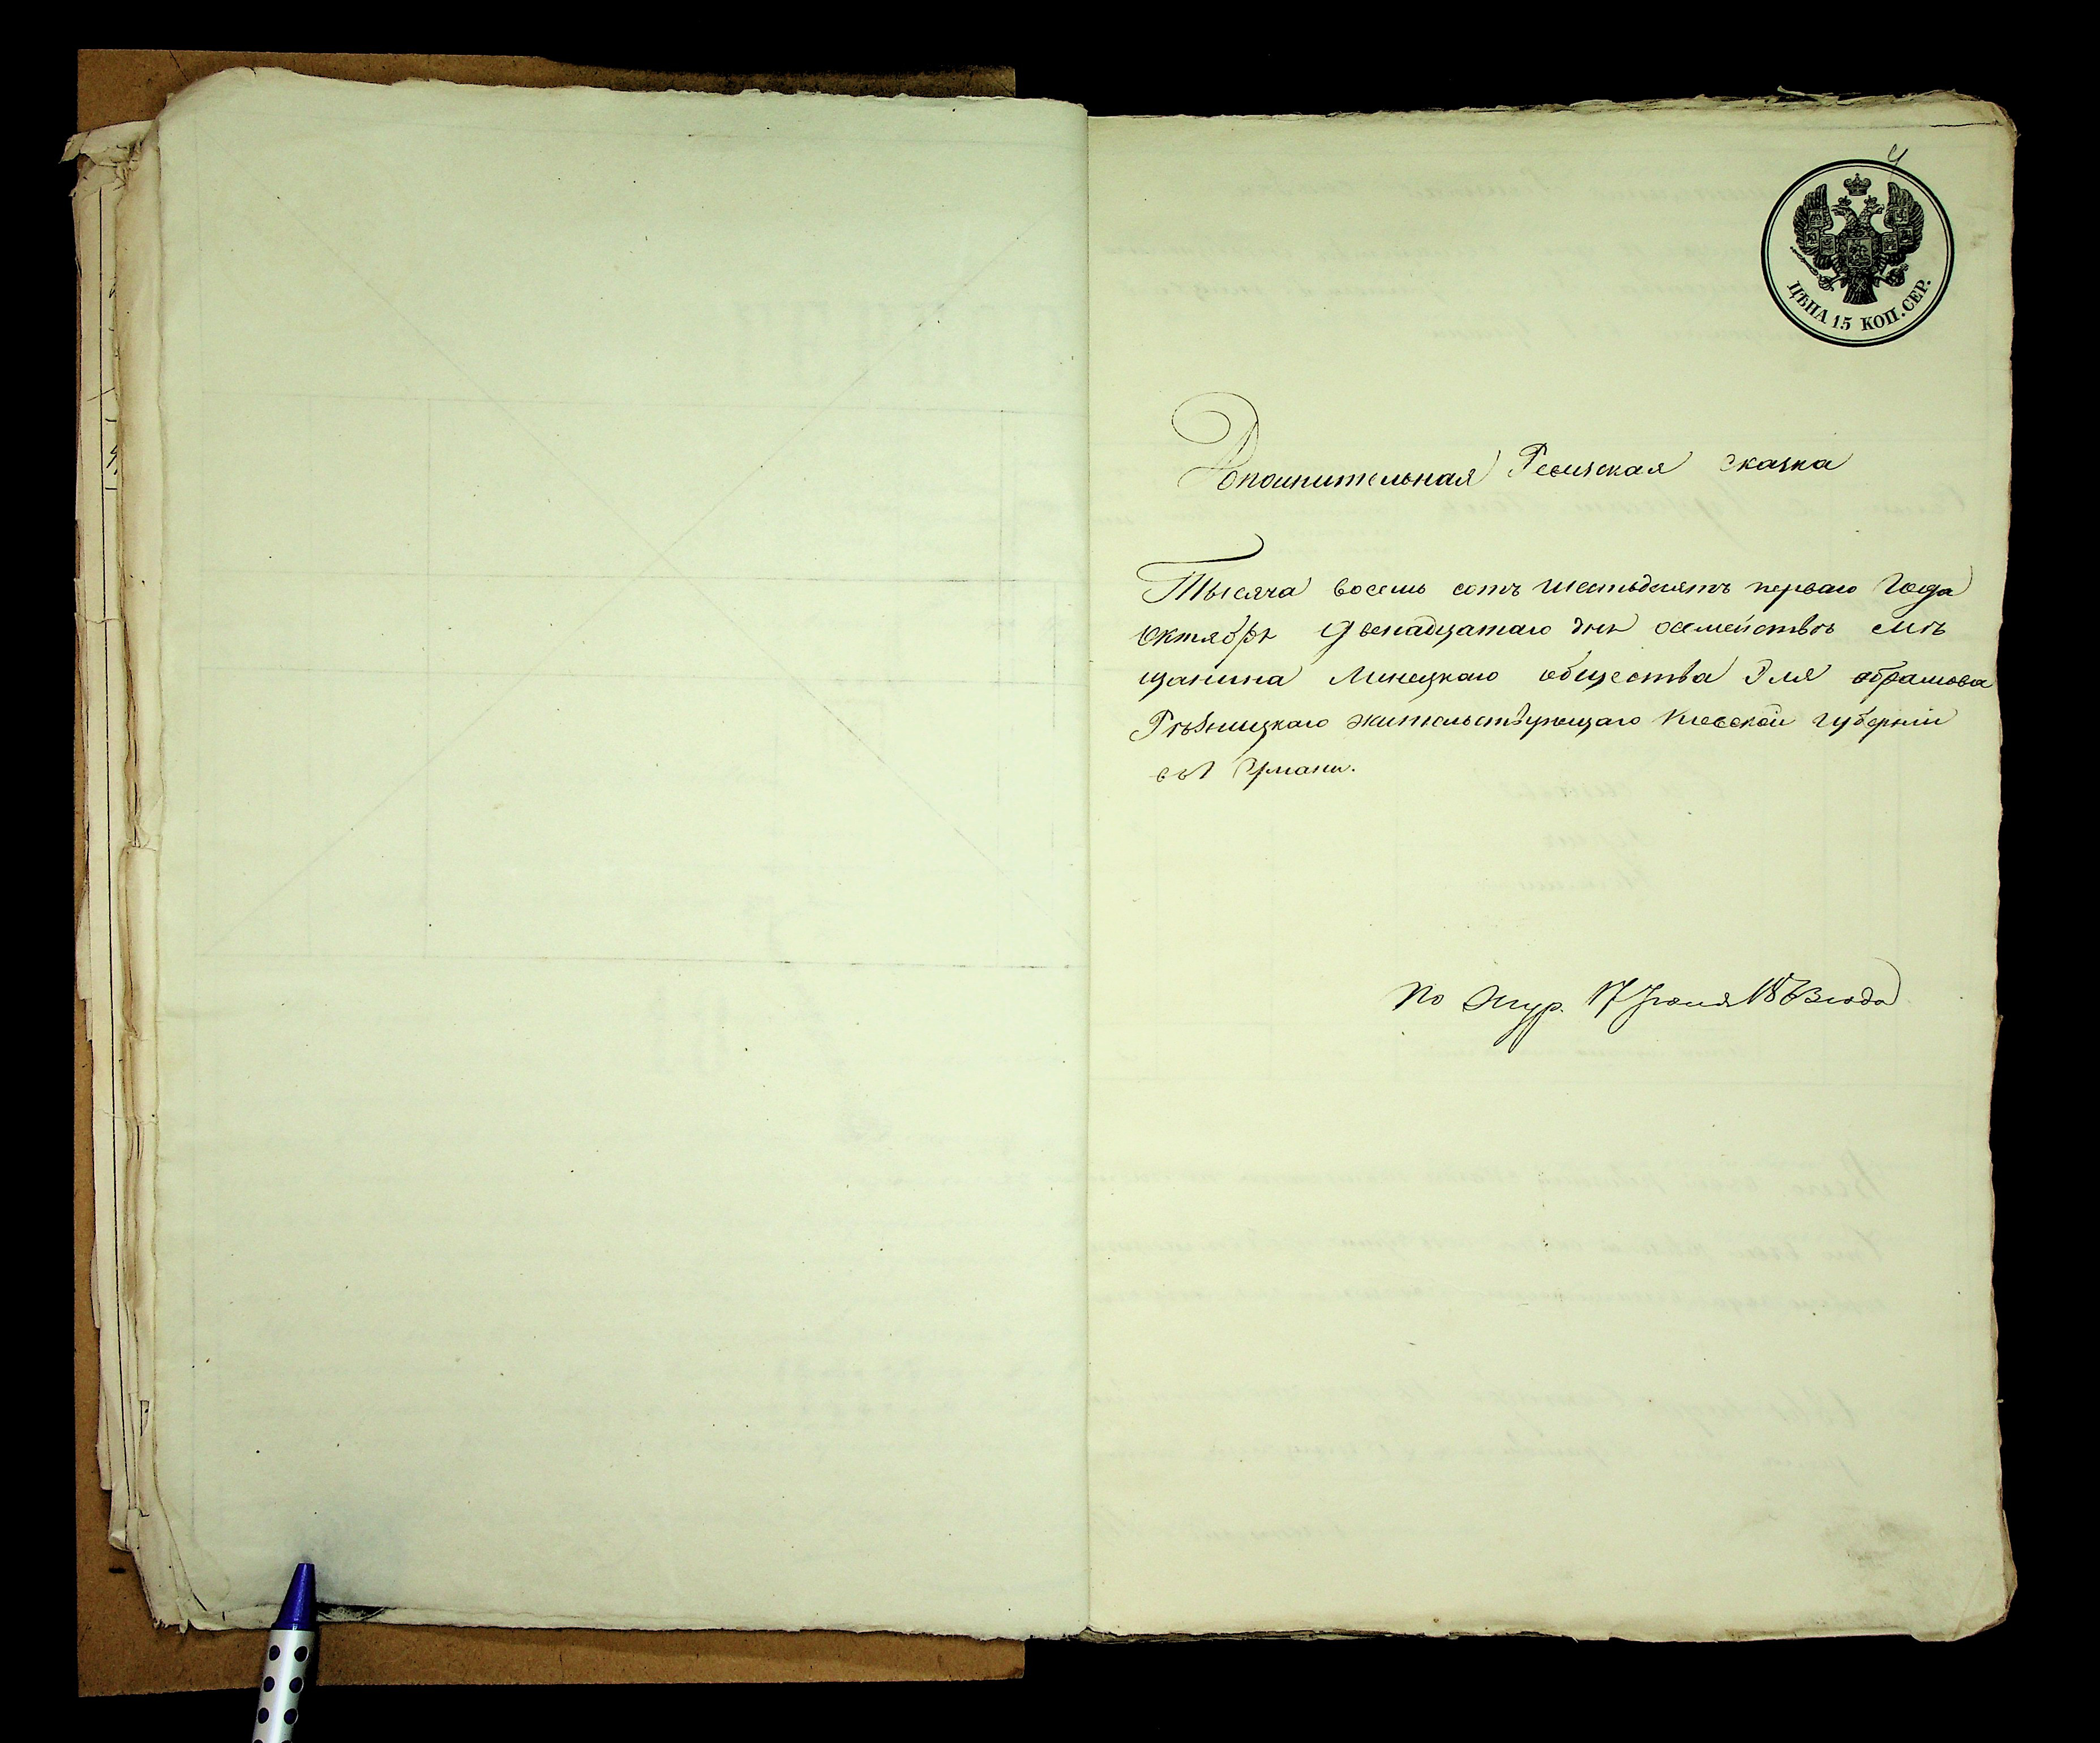 4
ЦѢНА 15 КОП. СЕР.
Дополнительная Ревизская сказка
Тысяча восемь сотъ шестьдесятъ перваго года
октября двенадцатаго дня осемействѣ мѣ
щанина Линецкаго общества Эля Абрамова
Рѣзницкаго жительствующаго Киевской губерніи
въ Умани.
По Жур. 17 Іюня 1863 года